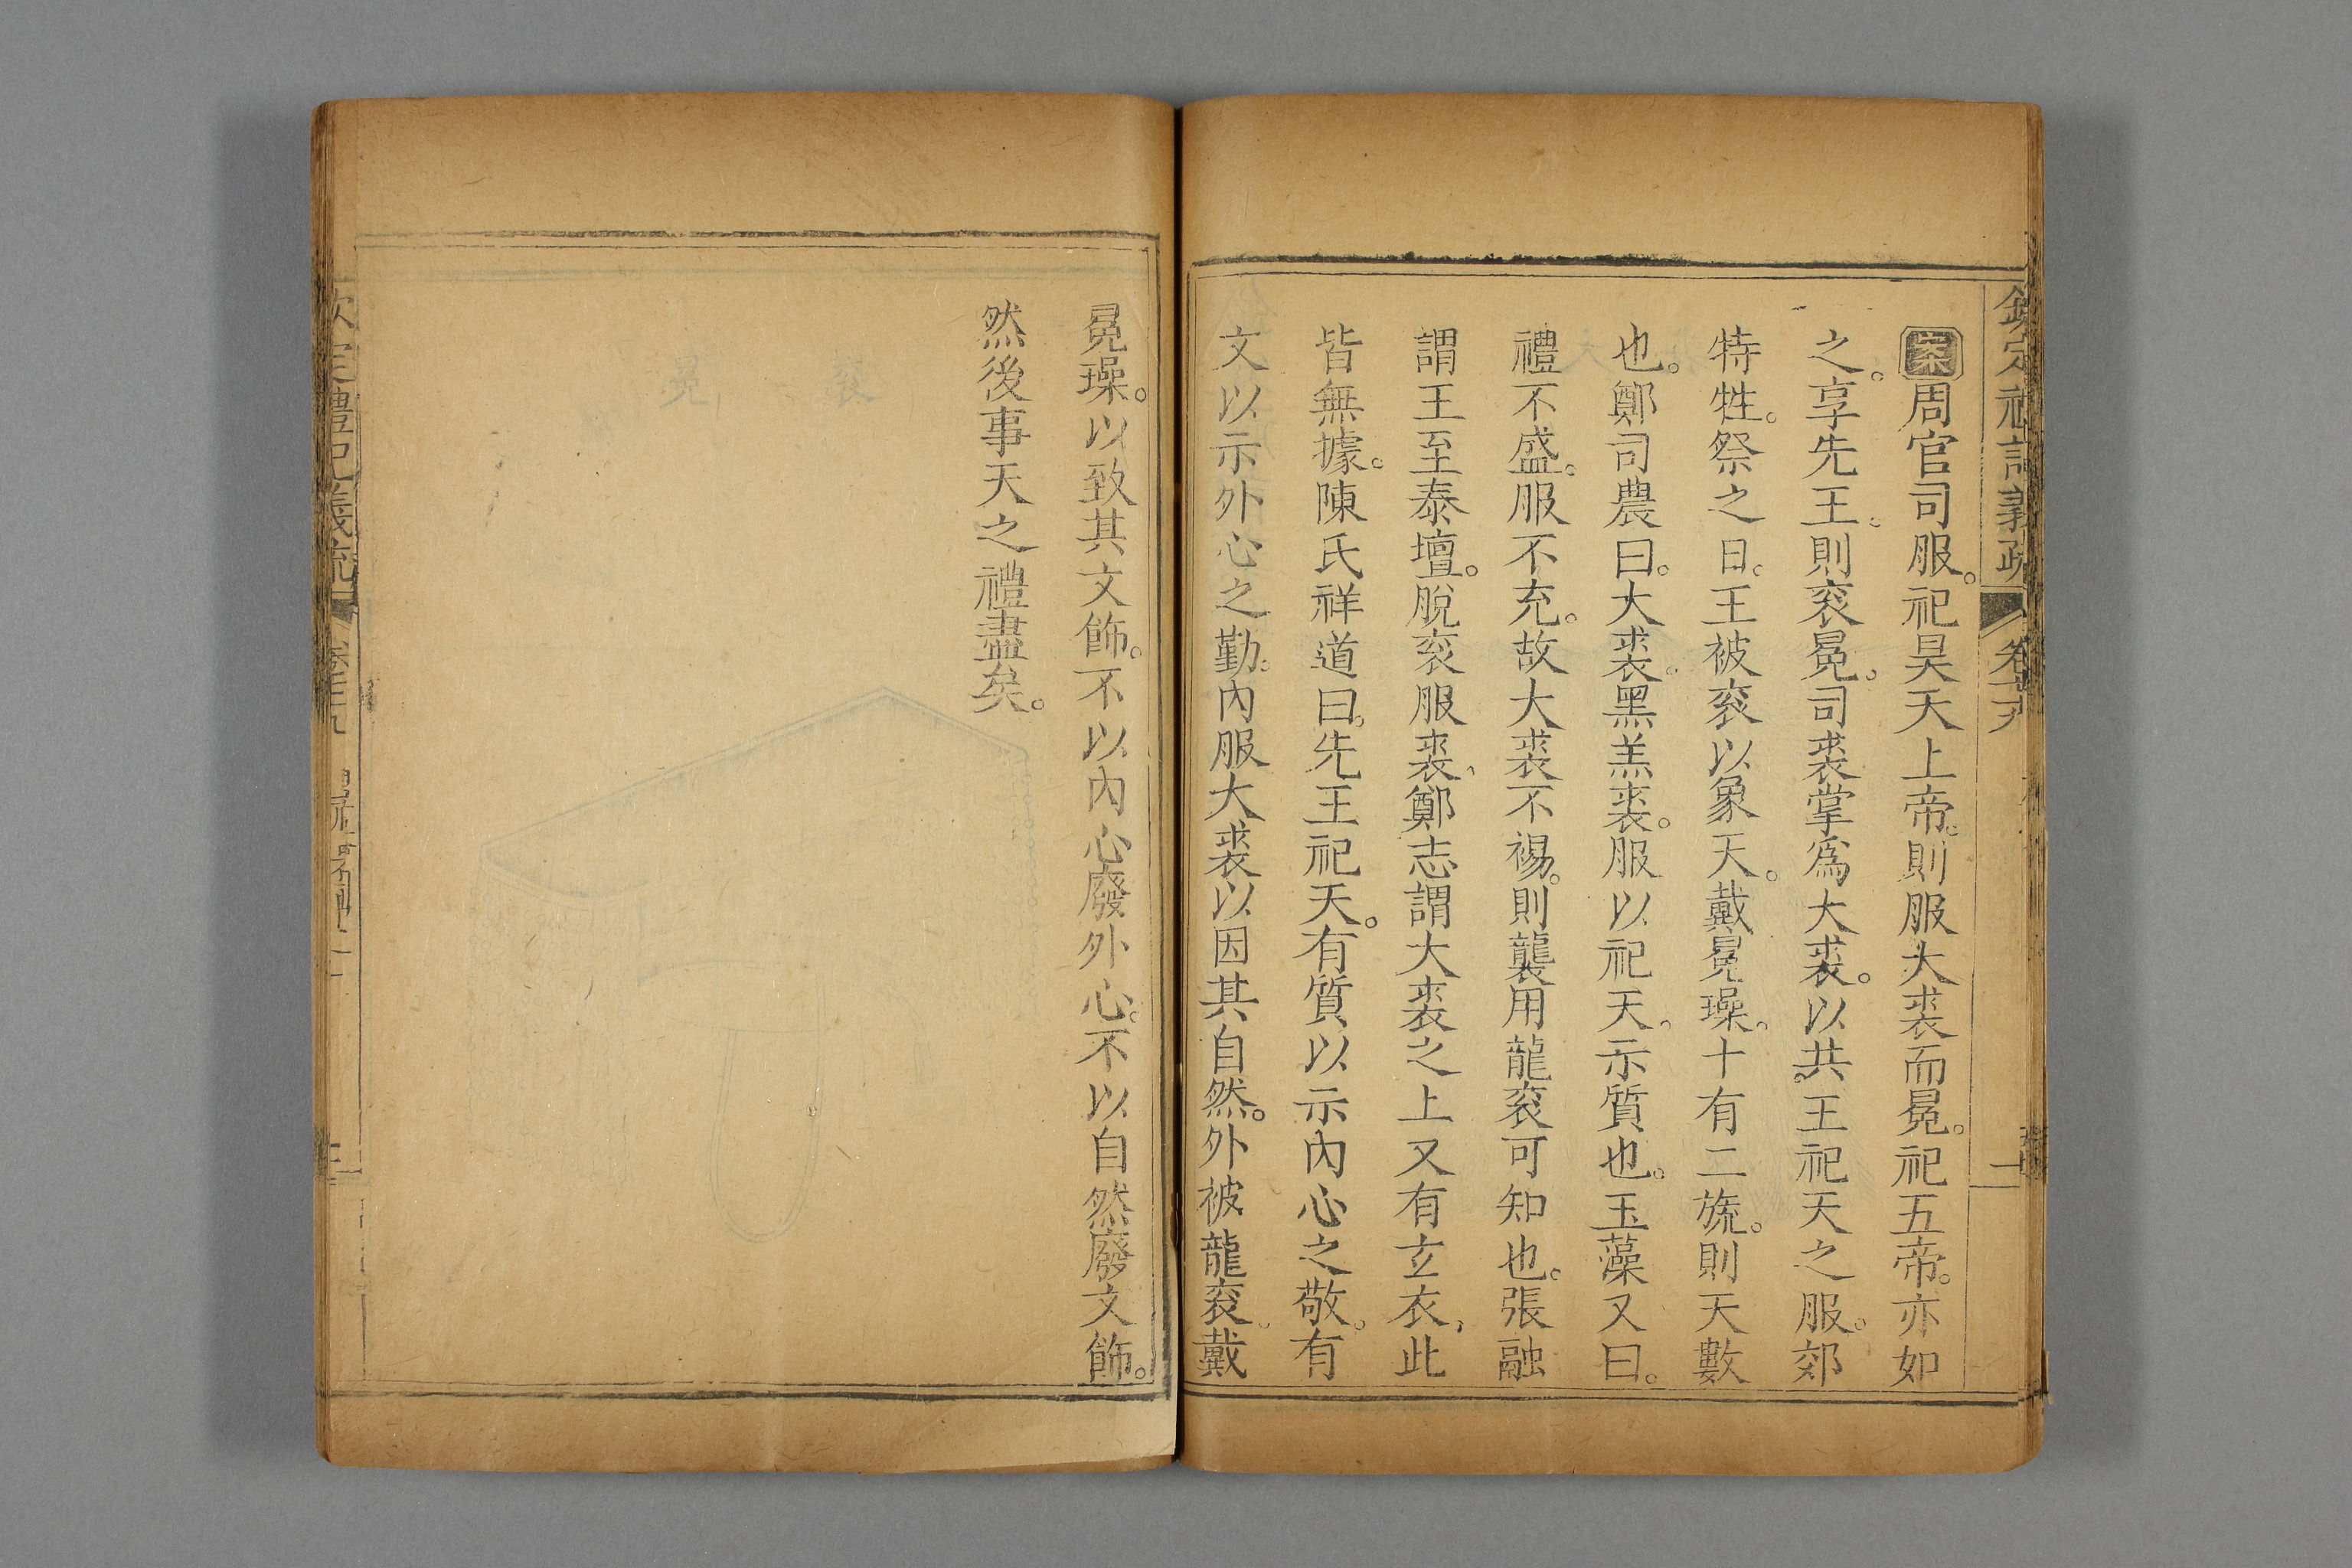 欽定禮記義疏 卷
案周官司服。祀昊天上帝。則服大裘而冕。祀五帝。亦如
之。享先王。則衮冕。司裘掌爲大裘。以共王祀天之服。郊
特牲。祭之日。王被衮以象天。戴冕璪。十有二旒。則天數
也。鄭司農曰。大裘。黑羔裘。服以祀天。示質也。玉藻又曰。
禮不盛。服不充。故大裘不裼。則襲用龍衮可知也。張融
謂王至泰壇。脫衮服裘、鄭志謂大裘之上又有玄衣、此
皆無據。陳氏祥道曰。先王祀天。有質以示內心之敬。有
文以示外心之勤。內服大裘以因其自然。外被龍衮。戴
冕璪。以致其文飾。不以內心廢外心。不以自然廢文飾。
然後事天之禮盡矣。
欽定禮記義疏